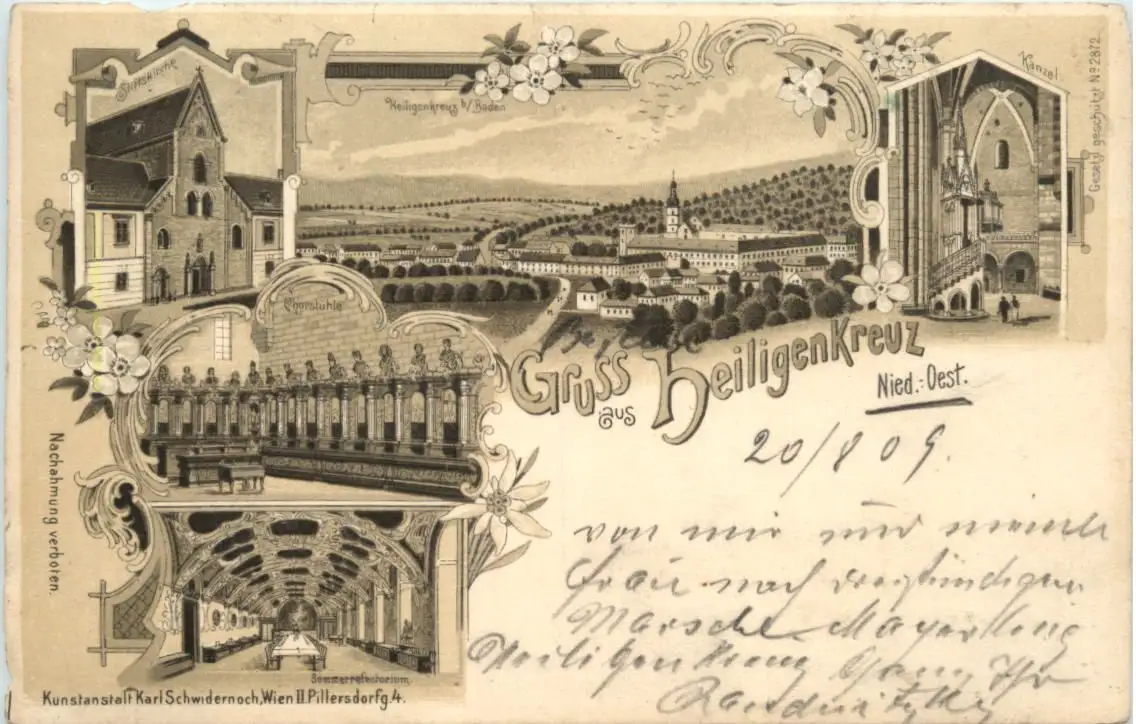 Stiftskirche
Heiligenkreuz b/ Baden
Kanzel.
Gesetz. geschützt Nº 2872.
Chorstühle
Gruss aus Heiligenkreuz
Nied.-Oest.
20/8 09.
von mir und meine
Frau nach dreistündigen
Marsche Mayerling
Heiligenkreuz
Nachahmung verboten.
Sommerrefektorium.
Kunstanstalt Karl Schwidernoch, Wien II. Pillersdorfg. 4.